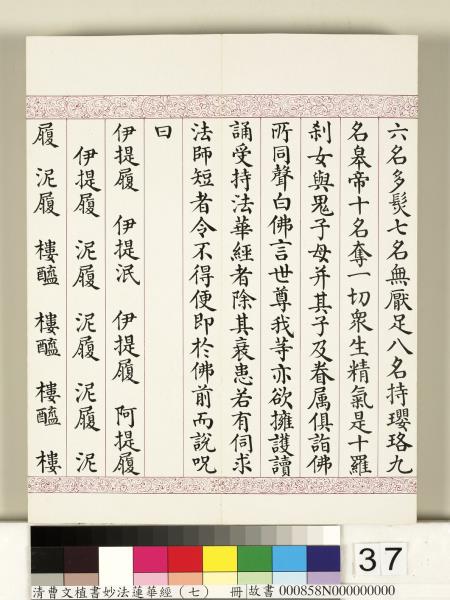 六名多髮七名無厭足八名持瓔珞九
名皋帝十名奪一切衆生精氣是十羅
刹女與鬼子母并其子及眷属俱詣佛
所同聲白佛言世尊我等亦欲擁護讀
誦受持法華經者除其衰患若有伺求
法師短者令不得便即於佛前而說呪
曰
伊提履 伊提泯 伊提履 阿提履
伊提履 泥履 泥履 泥履 泥
履 泥履 樓醯 樓醯 樓醯 樓
37
清曹文植書妙法蓮華經（七） 冊 故書 000858N000000000